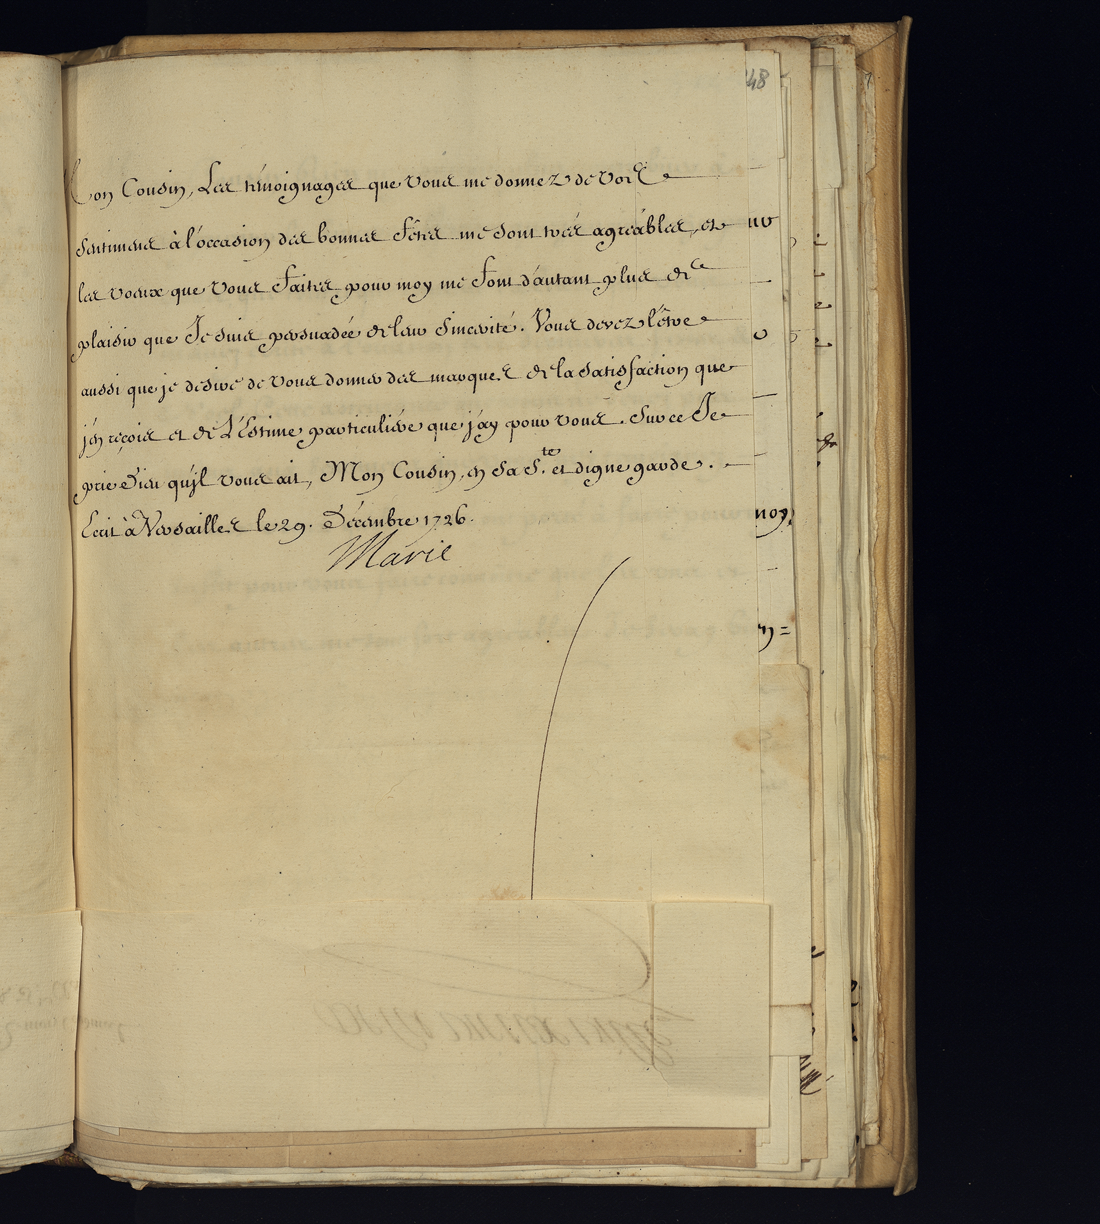 48
Mon Cousin, Les témoignages que vous me donnez de vos
sentimens à l'occasion des bonnes fêtes me sont tres agreables, et
les voeux que vous faites pour moy me font d'autant plus de
plaisir que Je suis persuadée de leur sincerité. Vous devez l'être
aussi que je desire de vous donner des marques de la satisfaction que
j'en reçois et de L'Estime particuliére que j'ay pour vous. Surce Je
prie Dieu qu'jl vous ait, Mon Cousin, en sa S.te et digne garde.
Ecrit à Versailles le 29. Décembre 1726.
Marie
noy,